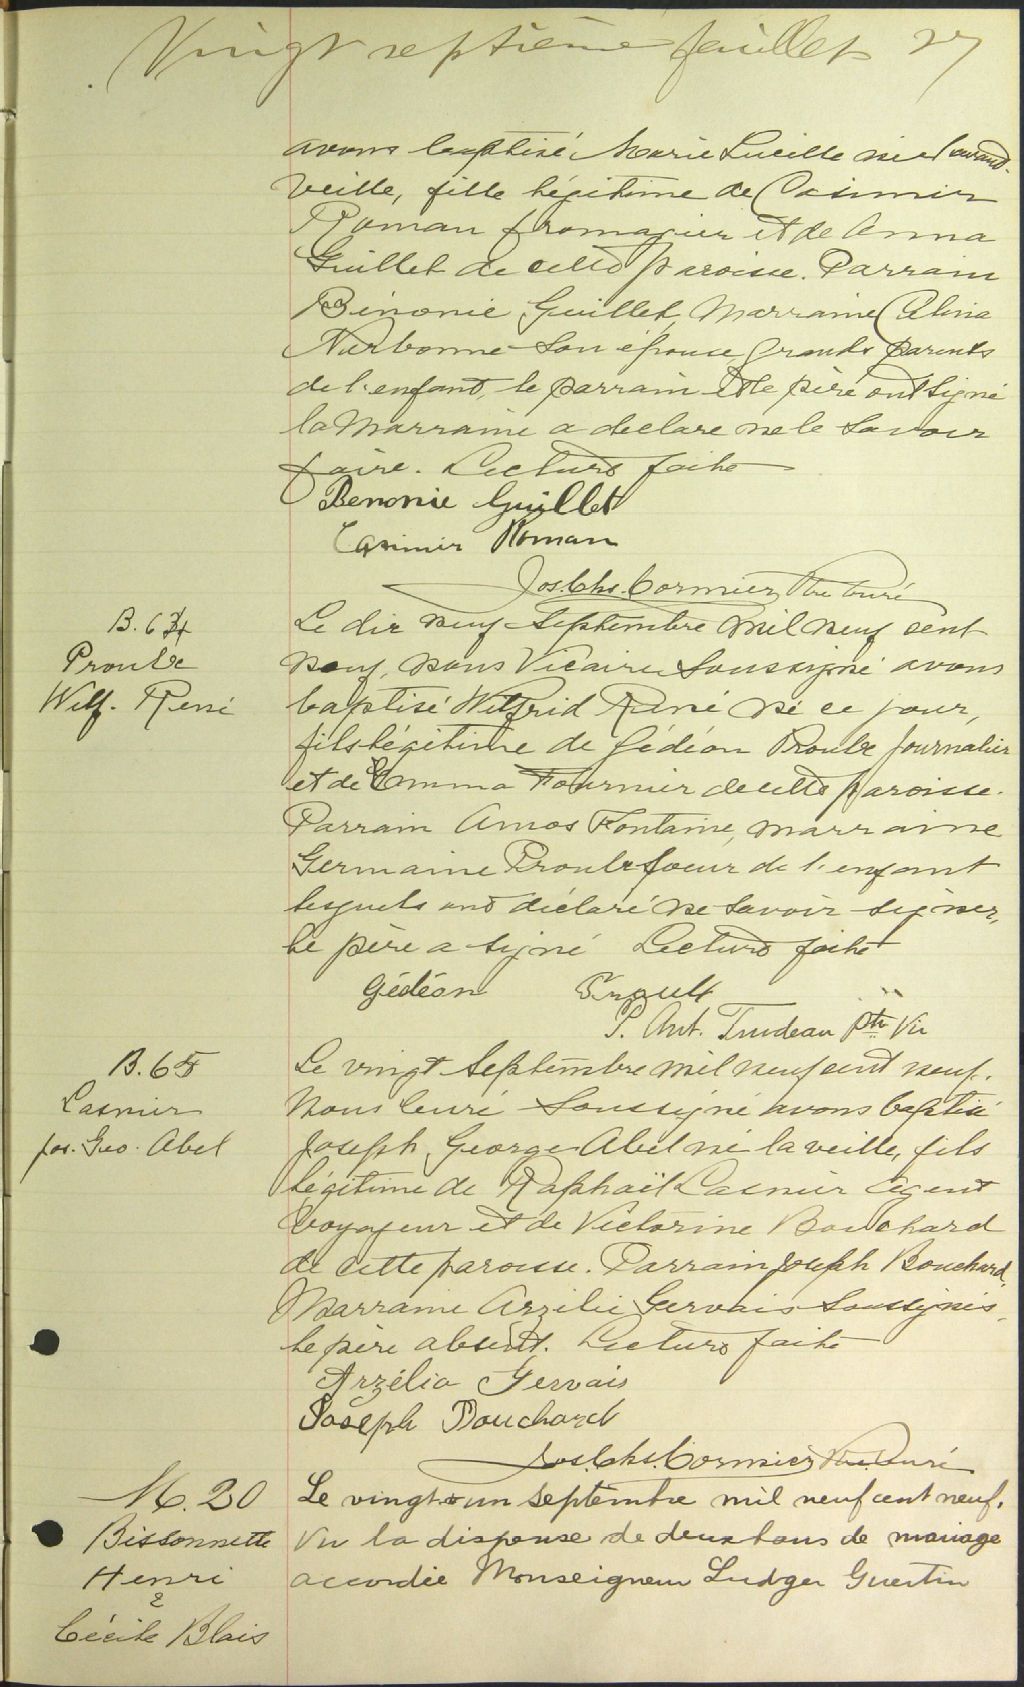 Vingt septième feuillet 27
avons baptisé Marie Lucille née l'avant-
veille, fille légitime de Casimir
Roman fromagier et de Anna
Guillet de cette paroisse. Parrain
Bénonie Guillet, Marraine Célina
Narbonne son épouse, grands parents
de l'enfant, le parrain et le père ont signé
la Marraine a déclaré ne le savoir
faire. Lecture faite
Benonie Guillet
Casimir Roman
Jos. Chs. Cormier, Ptre Curé
B. 64
Proulx
Wilf. René
Le dix neuf Septembre mil neuf cent
neuf, nous Vicaire soussigné avons
baptisé Wilfrid René né ce jour,
fils légitime de Gédéon Proulx journalier
et de Emma Fournier de cette paroisse.
Parrain Amos Fontaine, marraine
Germaine Proulx soeur de l'enfant
lesquels ont déclaré ne savoir signer,
le père a signé Lecture faite
Gédéon Proulx
P. Ant. Trudeau ptre Vic
B. 65
Lasnier
Jos. Geo. Abel
Le vingt Septembre mil neuf cent neuf.
Nous Curé Soussigné avons baptisé
Joseph George Abel né la veille, fils
légitime de Raphaël Lasnier Agent
Voyageur et de Victorine Bouchard
de cette paroisse. Parrain Joseph Bouchard,
Marraine Arzélie Gervais Soussignés,
le père absent. Lecture faite
Arzélia Gervais
Joseph Bouchard
Jos. Chs. Cormier Ptre. Curé
M. 20
Bissonnette
Henri
&
Cécile Blais
Le vingt-un septembre mil neuf cent neuf.
Vu la dispense de deux bans de mariage
accordée Monseigneur Ludger Guertin